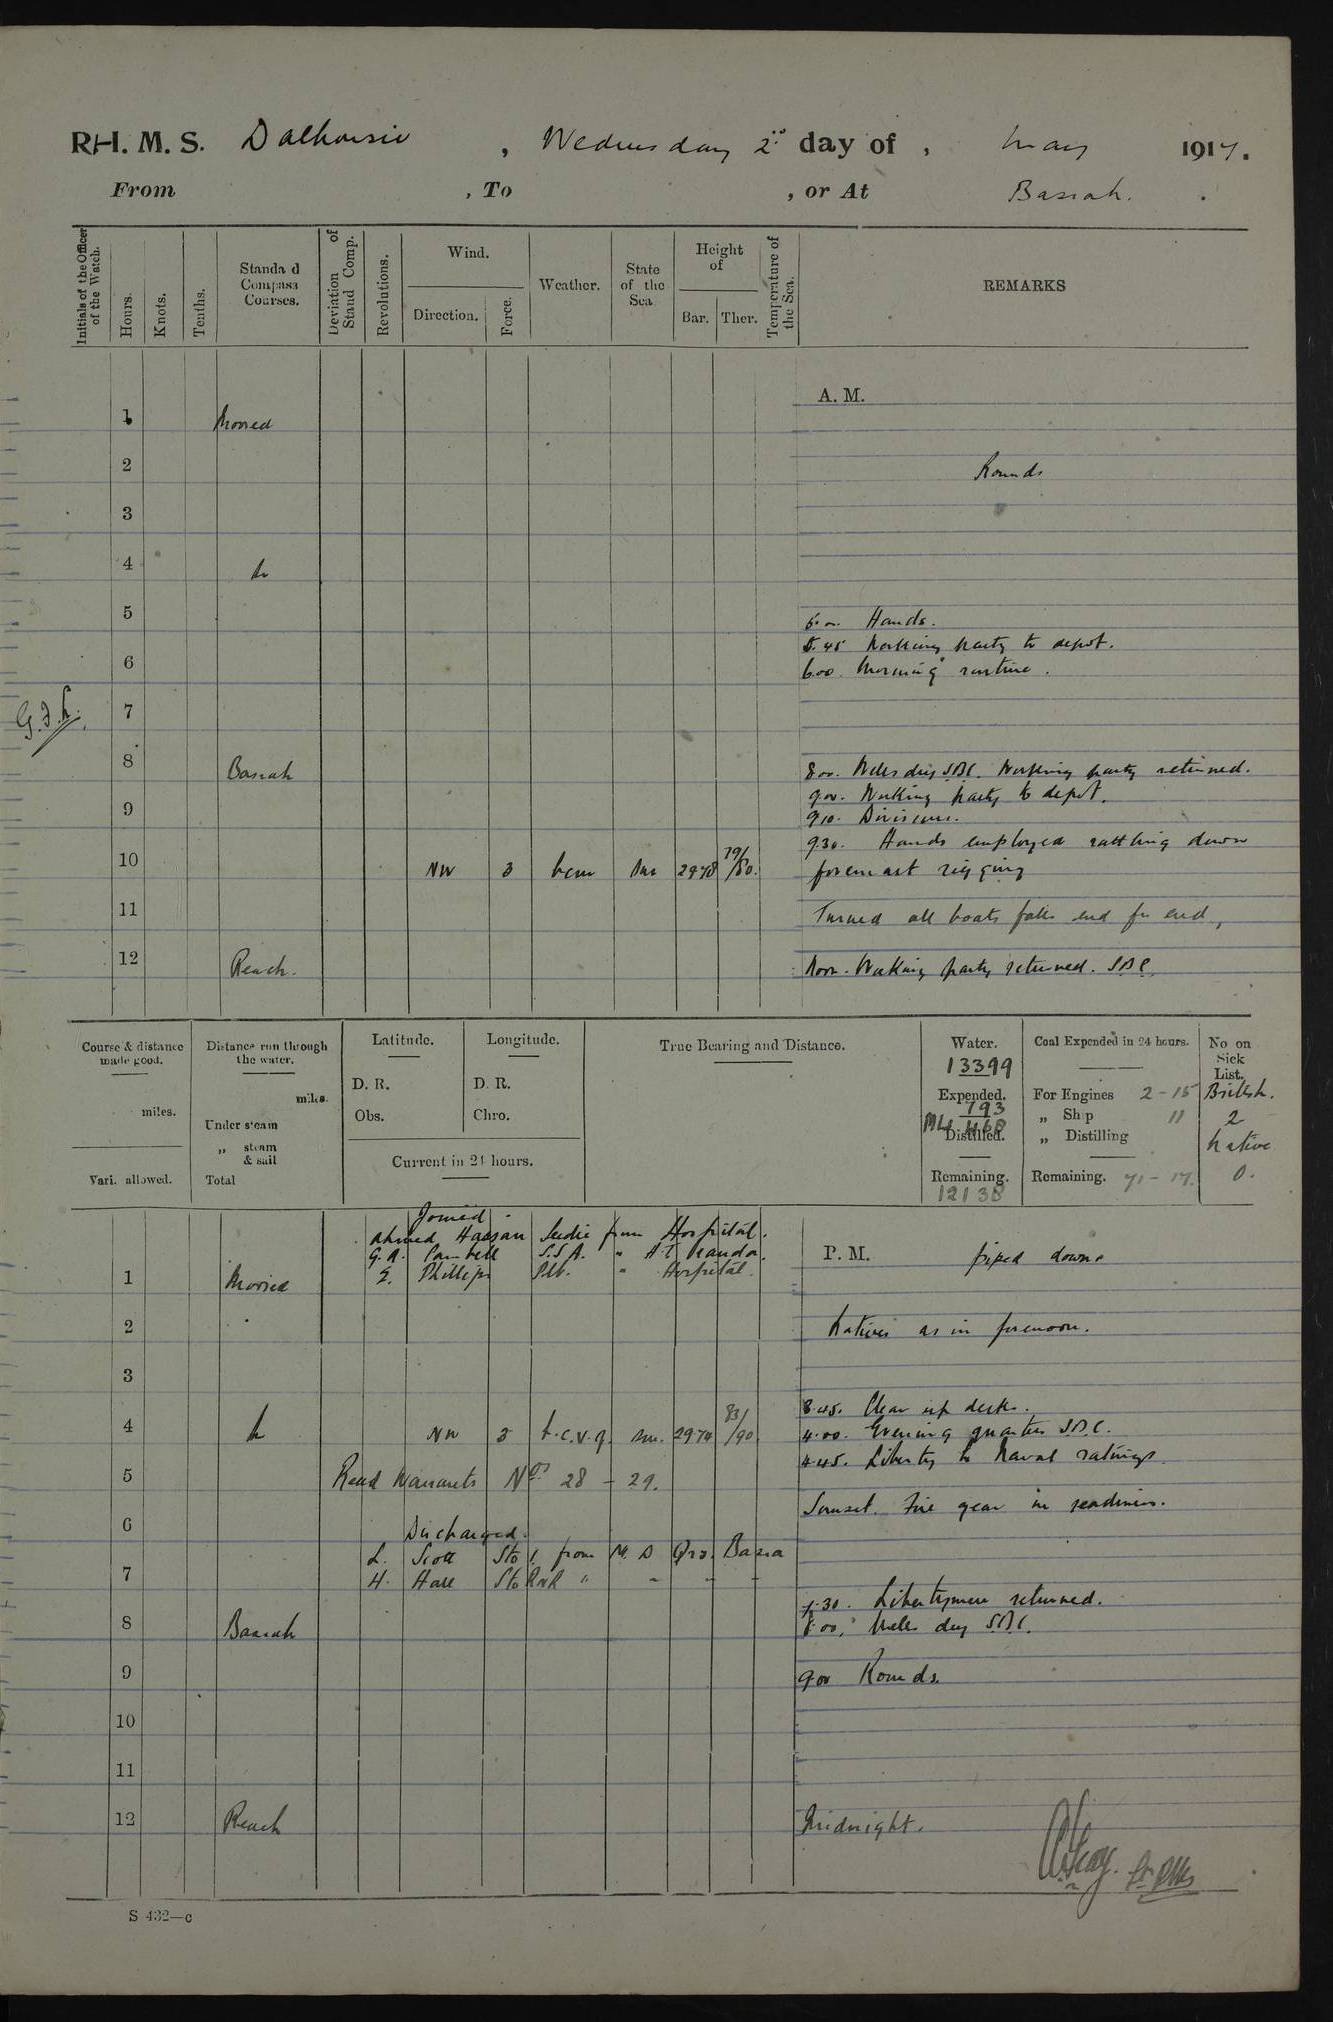 R.H. M. S. Dalhousie , Wednesday 2nd day of , May 1917.
From , To , or At Basrah.
Initials of the Officer of the Watch.
Hours.
Knots.
Tenths.
Standa d Compass Courses.
Deviation of Stand Comp.
Revolutions.
Wind.
Direction.
Force.
Weather.
State of the Sea
Height of
Bar.
Ther.
Temperature of the Sea.
REMARKS
A. M.
1 Moored
2 Rounds
3
4 In
5 Hands.
5.45 Working party to depot.
6 6.00. Morning routine.
7
8 Basrah 8.00. Wales dry S.B.C. Working party returned.
9.00. Working party to depot.
9 9.10. Divisions.
9.30. Hands employed rattling down
10 NW 3 bcm 29.78 79/80. foremast rigging
11 Turned all boats falls end for end,
12 Reach. Noon. Working party returned. S.B.C.
Course & distance made good.
miles.
Vari. allowed.
Distance run through the water.
miles.
Under steam
„ steam & sail
Total
Latitude.
D. R.
Obs.
Longitude.
D. R.
Chro.
Current in 24 hours.
True Bearing and Distance.
Water.
13399
Expended.
793
468
Distilled.
Remaining.
12138
Coal Expended in 24 hours.
For Engines 2 - 15
„ Ship 11
„ Distilling
Remaining. 71 - 17.
No on Sick List.
British.
2
Native
0.
Joined.
Ahmed Hassan Seedie from Hospital.
G. A. Cambell S.S.A. " H.T.
E. Phillips Pte. " Hospital.
P. M. piped down
1 Moored
2 Natives as in forenoon.
3
3.45. Clear up decks.
4 In NW 3 b.c.v.q. 29.74 83/90 4.00. Evening quarters S.B.C.
4.45. Liberty to Naval ratings.
5 Read Warrants Nos 28 - 29.
Sunset. Fire gear in readiness.
6 Discharged.
L. Scott Sto 1. from M. S Qrs. Basra
7 H. Hall Sto RNR " " " "
7.30. Libertymen returned.
8 Basrah 8.00. Wales dry S.B.C.
9 9.00 Rounds.
10
11
12 Reach Midnight.
S 432—c